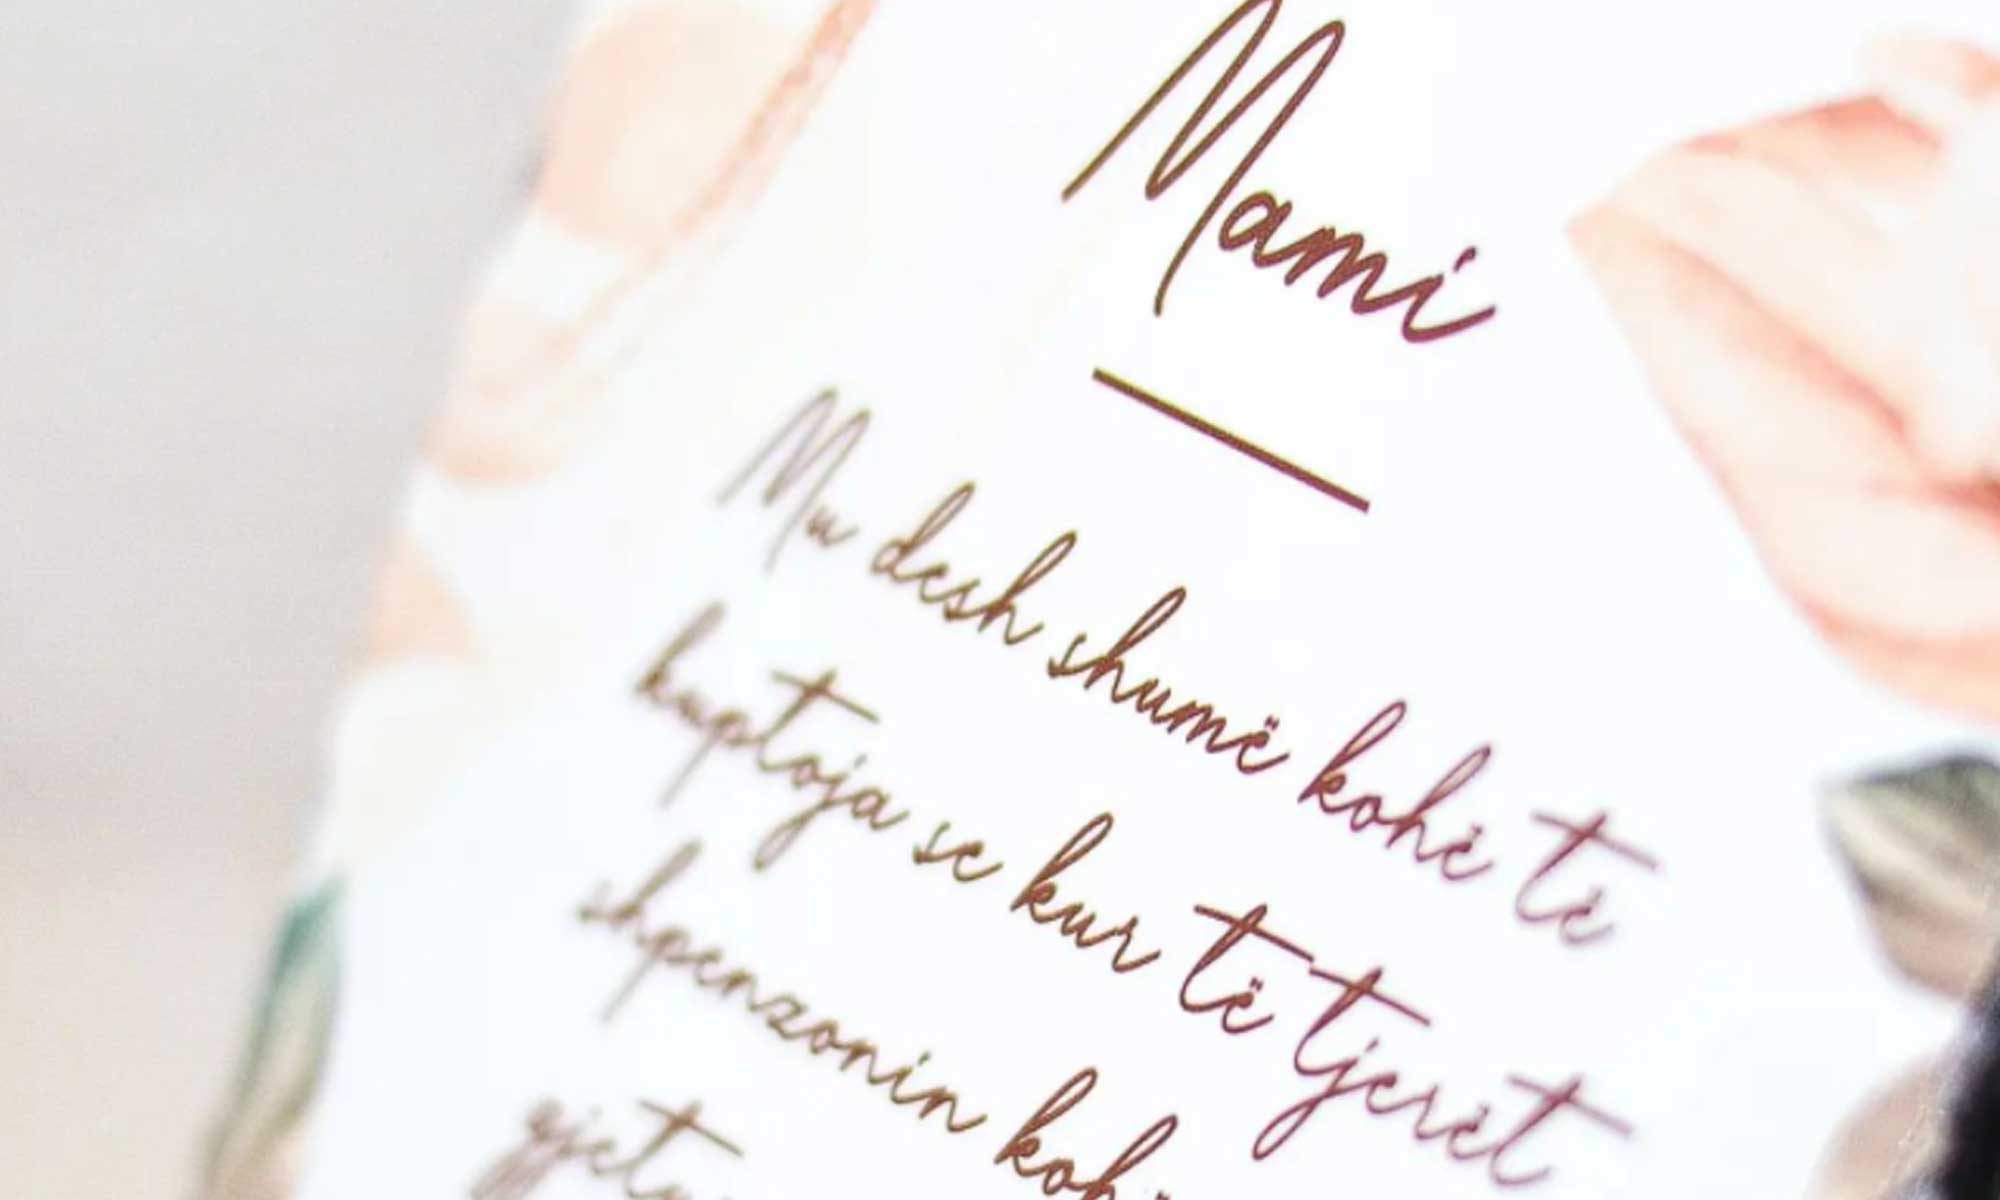 Mami
Mu desh shumë kohë të
kuptoja se kur të tjerët
shpenzonin kohë